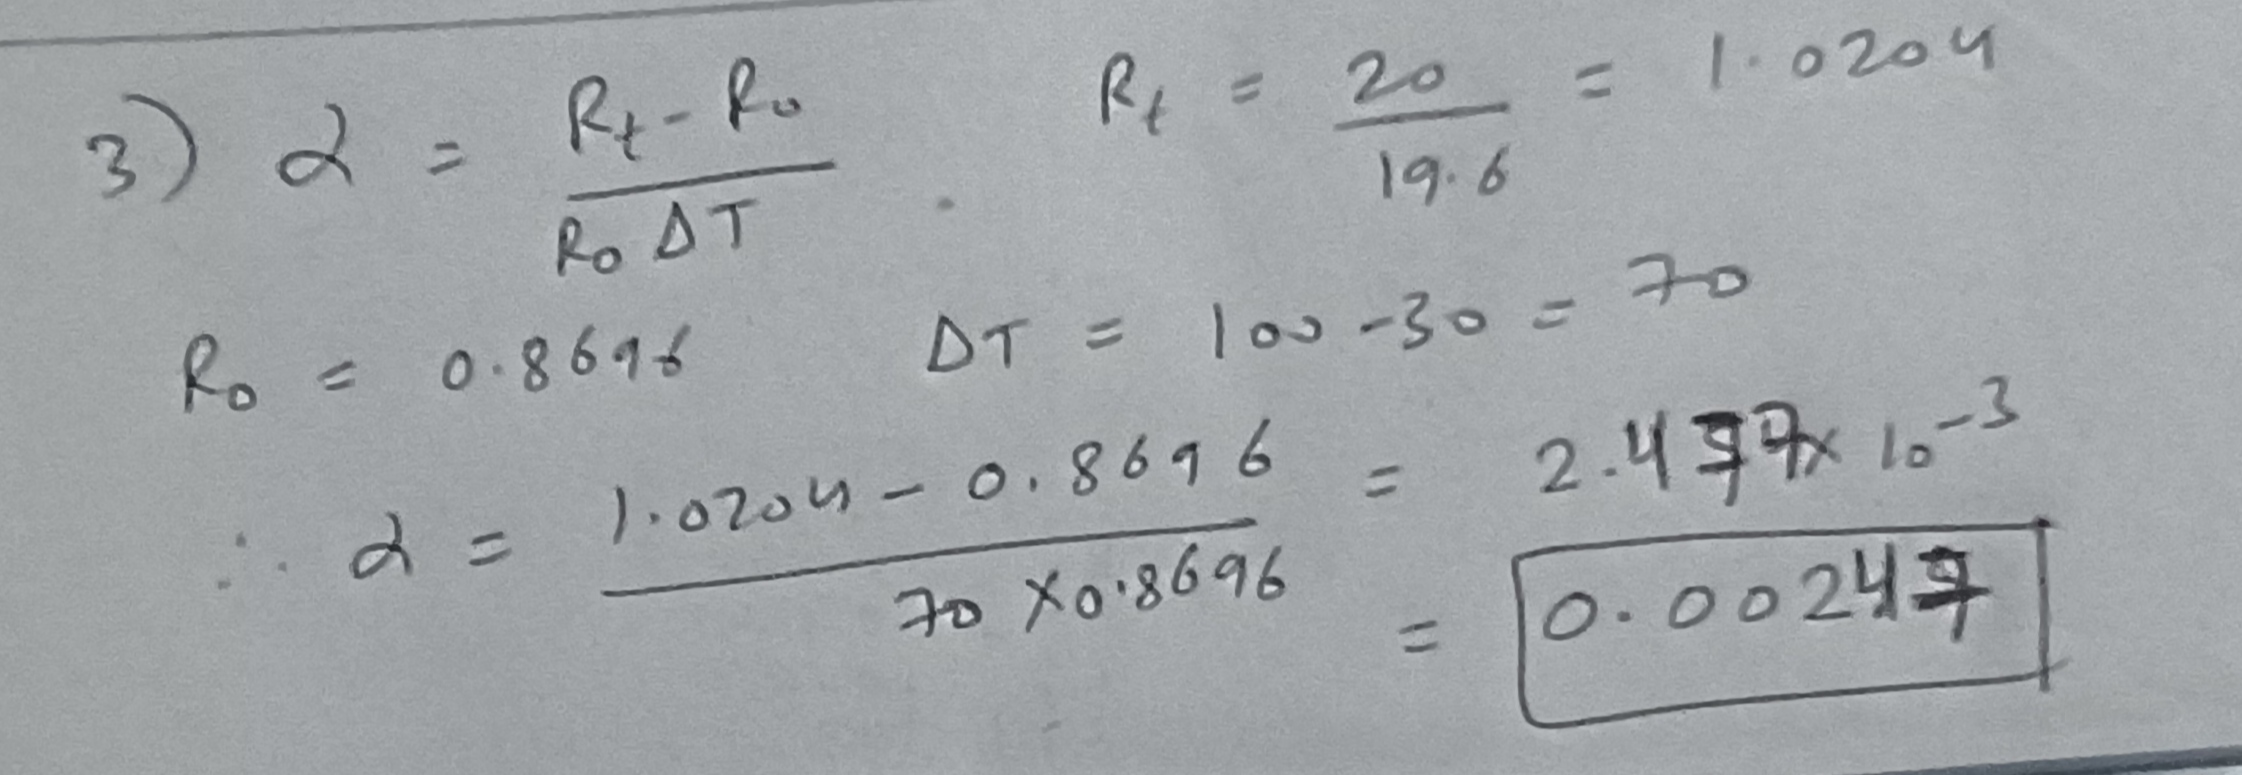 3) α = (Rt - Ro) / (Ro ΔT) . Rt = 20 / 19.6 = 1.0204
Ro = 0.8696 ΔT = 100 - 30 = 70
∴ α = (1.0204 - 0.8696) / (70 × 0.8696) = 2.477 × 10^-3
= 0.00247